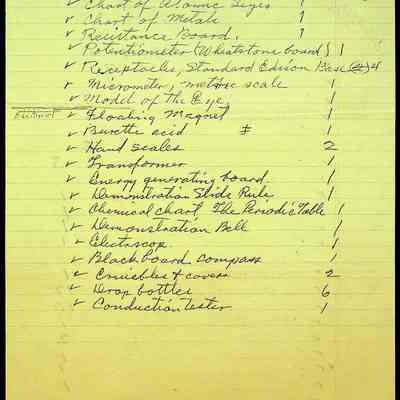 ✓ Chart of Atomic Sizes 1
✓ Chart of Metals 1
✓ Resistance Board. 1
✓ Potentiometer (Wheatstone board) 1
✓ Receptacles, Standard Edison Base 4
✓ Micrometer, metric scale 1
✓ Model of the Eye, 1
✓ Floating Magnet 1
✓ Burette acid 1
✓ Hand scales 2
✓ Transformer 1
✓ Energy generating board. 1
✓ Demonstration Slide Rule 1
✓ Chemical chart The Periodic Table 1
✓ Demonstration Bell 1
✓ Electroscop. 1
✓ Blackboard Compass 1
✓ Crucibles & covers 2
✓ Drop bottles 6
✓ Conduction Tester 1